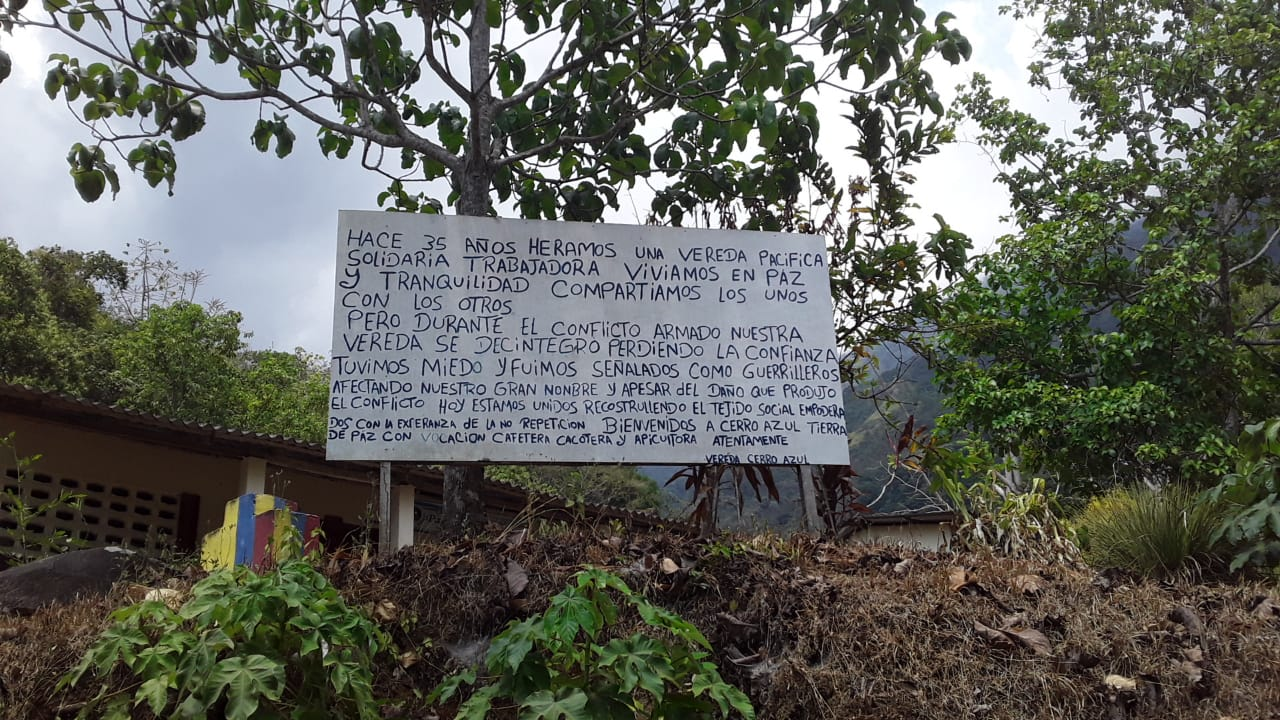 HACE 35 AÑOS HERAMOS UNA VEREDA PACIFICA
SOLIDARIA TRABAJADORA VIVIAMOS EN PAZ
Y TRANQUILIDAD COMPARTIAMOS LOS UNOS
CON LOS OTROS
PERO DURANTE EL CONFLICTO ARMADO NUESTRA
VEREDA SE DECINTEGRO PERDIENDO LA CONFIANZA
TUVIMOS MIEDO Y FUIMOS SEÑALADOS COMO GUERRILLEROS
AFECTANDO NUESTRO GRAN NONBRE Y APESAR DEL DAÑO QUE PRODUJO
EL CONFLICTO HOY ESTAMOS UNIDOS RECOSTRULLENDO EL TEJIDO SOCIAL EMPODERA
DOS CON LA ESPERANZA DE LA NO REPETICION BIENVENIDOS A CERRO AZUL TIERRA
DE PAZ CON VOCACION CAFETERA CACOTERA Y APICULTORA ATENTAMENTE
VEREDA CERRO AZUL